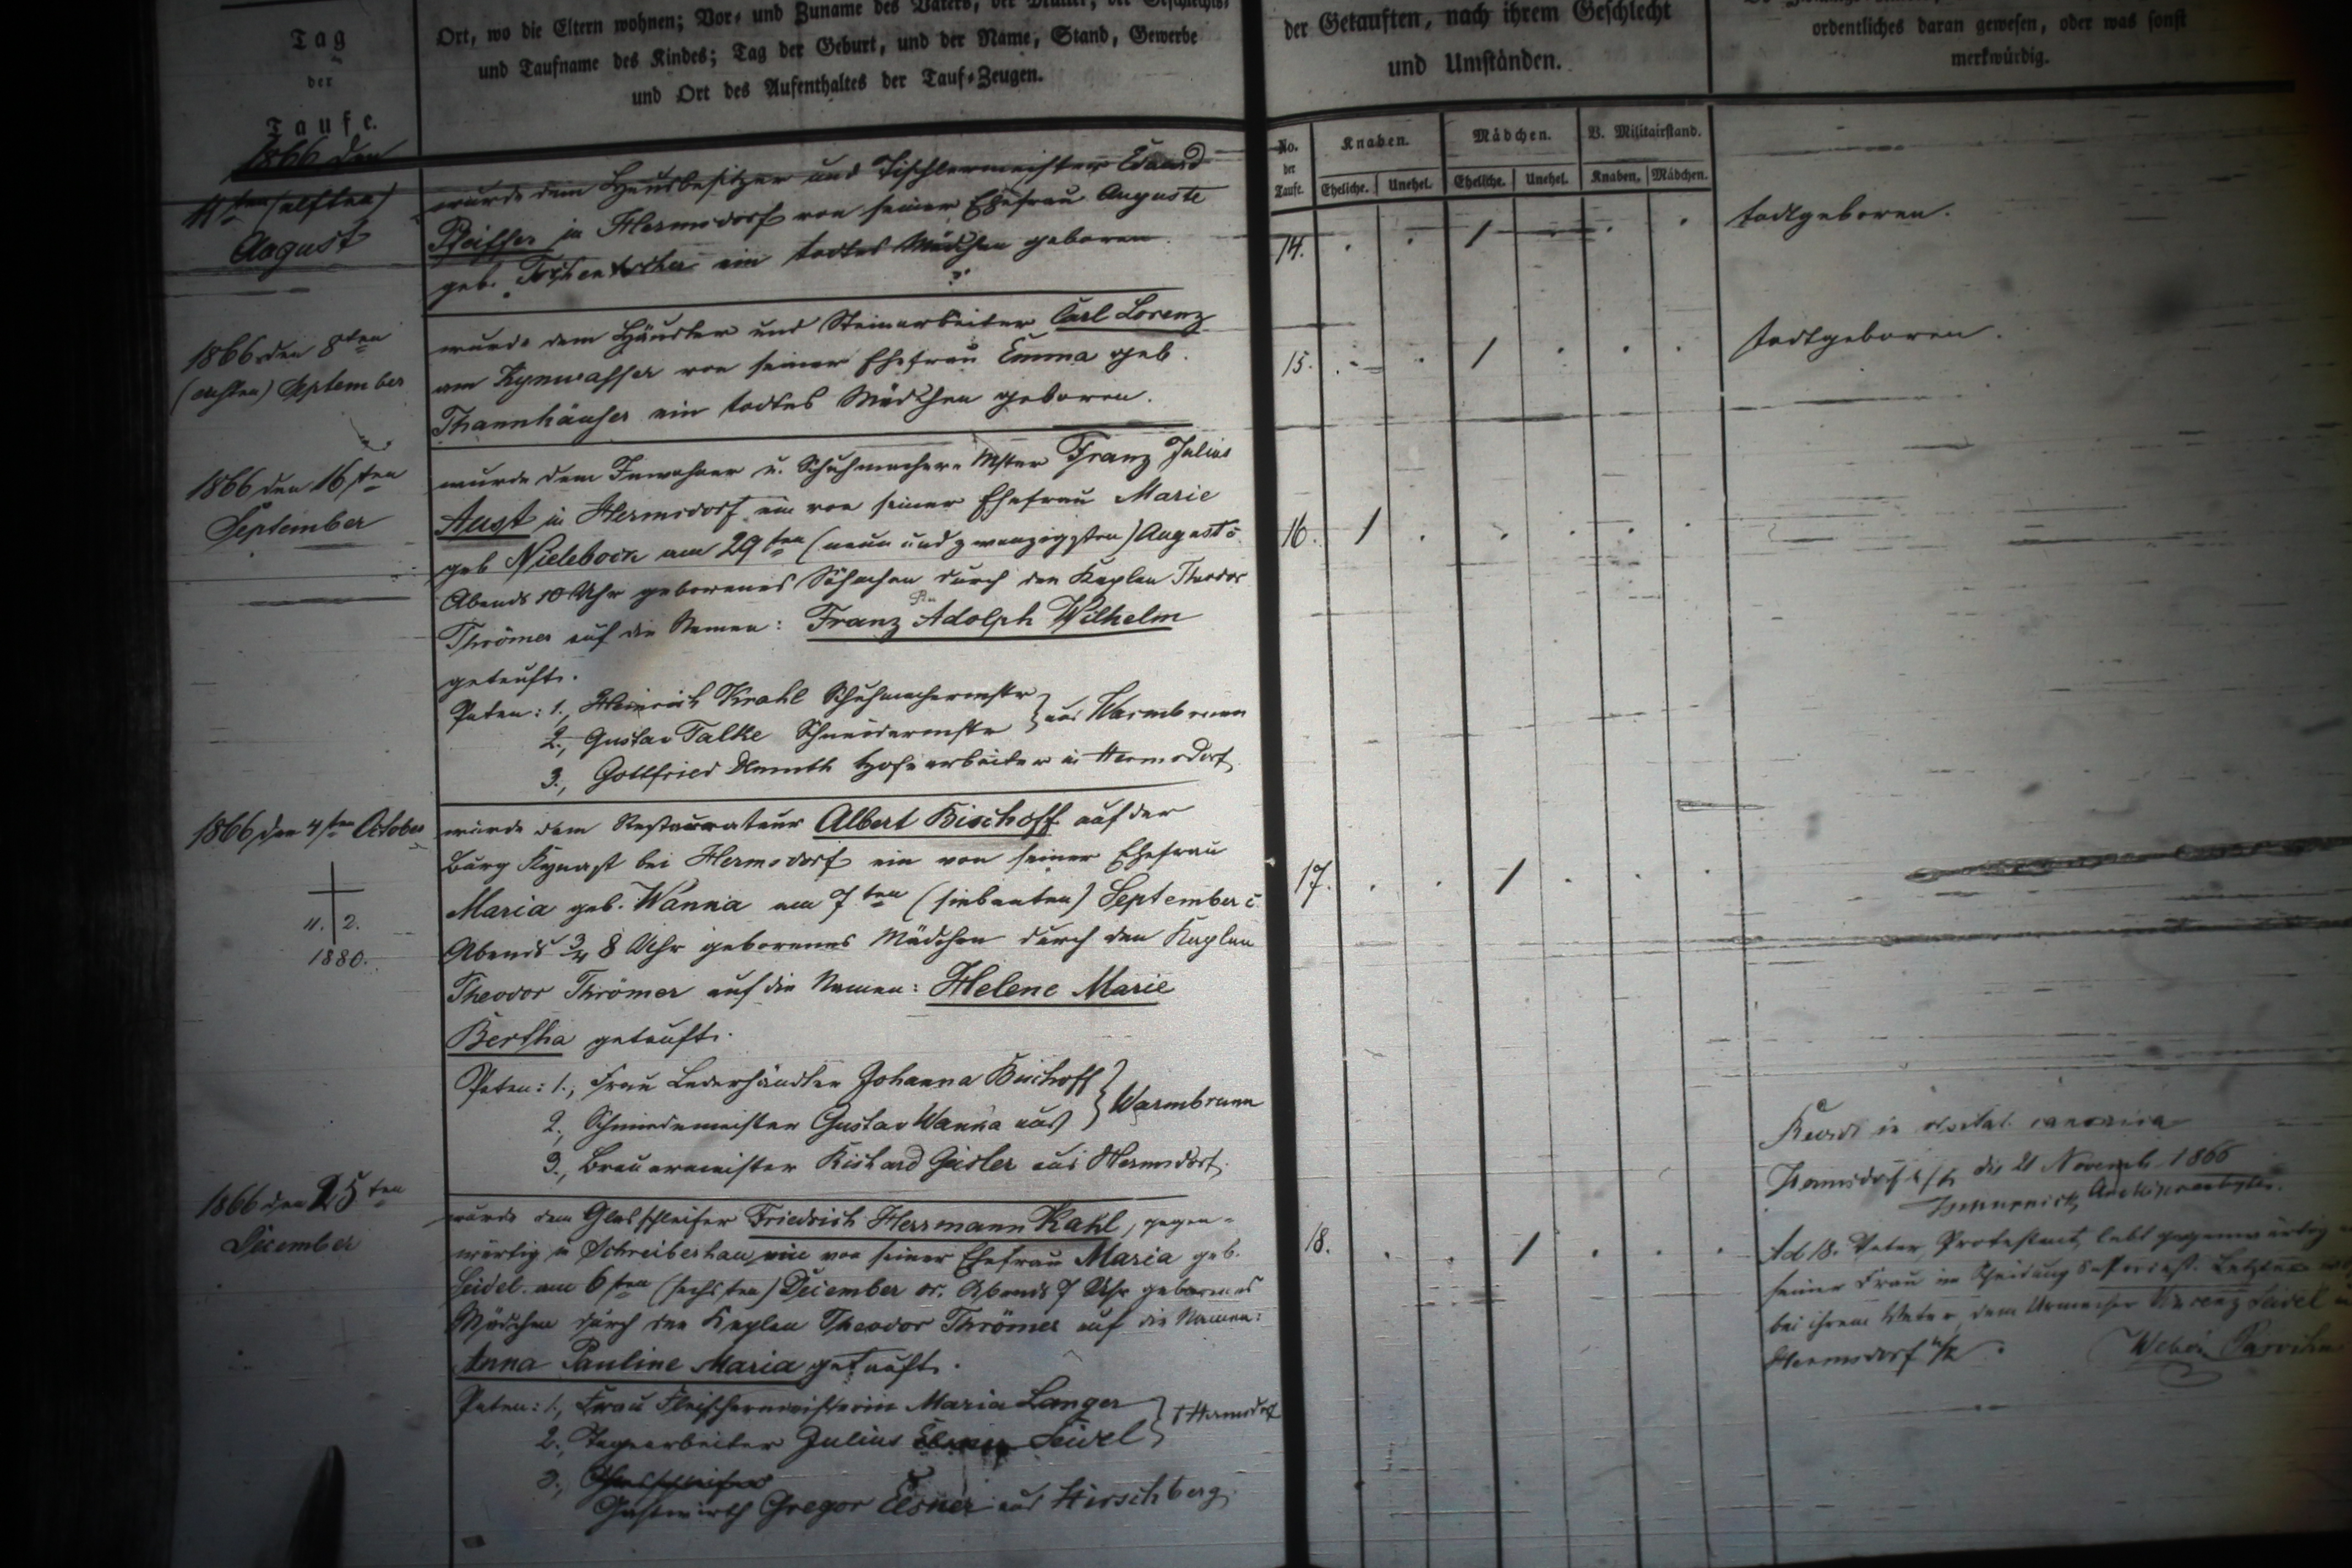 Tag
der
Taufe.
Ort, wo die Eltern wohnen; Vor- und Zuname des Vaters, der Mutter, der Geschlechts-
und Taufname des Kindes; Tag der Geburt, und der Name, Stand, Gewerbe
und Ort des Aufenthaltes der Tauf-Zeugen.
der Getauften, nach ihrem Geschlecht
und Umständen.
ordentliches daran gewesen, oder was sonst
merkwürdig.
No.
der
Tauft.
Knaben.
Mädchen.
V. Militairstand.
Eheliche.
Unehel.
Eheliche.
Unehel.
Knaben.
Mädchen.
1866 den
11ten (elften)
August
wurde dem Hausbesitzer und Tischlermeister Eduard
in Hermsdorf von seiner Ehefrau Auguste
geb. ein todtes Mädchen geboren.
14.
1
todtgeboren.
1866 den 8ten
(achten) September
wurde dem Häusler und Steinarbeiter Carl Lorenz
am Kynwasser von seiner Ehefrau Emma geb.
Thannhäuser ein todtes Mädchen geboren.
15.
1
todtgeboren.
1866 den 16ten
September
wurde dem Inwohner u. Schuhmacher-Mster Franz Julius
Aust in Hermsdorf ein von seiner Ehefrau Marie
geb Nielebock am 29ten (neun und zwanzigsten) August c.
Abends 10 Uhr geborenes Söhnchen durch den Kaplan Theodor
Thrömer auf die Namen: Franz Adolph Wilhelm
getauft.
16.
1
Paten: 1., Heinrich Krahl Schuhmachermstr
2., Gustav Talke Schneidermstr
aus Warmbrunn
3., Gottfried Hofearbeiter in Hermsdorf.
1866 den 4ten October
11. 2.
1880.
wurde dem Restaurateur Albert Bischoff auf der
Burg Kynast bei Hermsdorf ein von seiner Ehefrau
Maria geb. Wanna am 7ten (siebenten) September c.
Abends 3/4 8 Uhr geborenes Mädchen durch den Kaplan
Theodor Thrömer auf die Namen: Helene Marie
Bertha getauft.
17.
1
Paten: 1., Frau Lederhändler Johanna Bischoff
2., Schmiedemeister Gustav Wanna aus
Warmbrunn
3., Brauermeister Richard Geisler aus Hermsdorf.
1866 den 25ten
December
wurde dem Glasschleifer Friedrich Herrmann Kahl, gegen-
wärtig in Schreiberhau, ein von seiner Ehefrau Maria geb.
Seidel am 6ten (sechsten) December cr. Abends 7 Uhr geborenes
Mädchen durch den Kaplan Theodor Thrömer auf die Namen:
Anna Pauline Maria getauft.
18.
1
Paten: 1., Frau Fleischermeisterin Maria Langer
2., Tagearbeiter Julius Seidel
Hermsdorf
3., Glasschleifer
Gastwirth Gregor Elsner aus Hirschberg.
canonica
Hermsdorf die 21 Novemb. 1866
Archipresbyter.
Ad 18. Vater, Protestant, lebt gegenwärtig
seiner Frau in Scheidung Letztere
bei ihrem Vater, dem Seidel
Hermsdorf u/K.
Weber